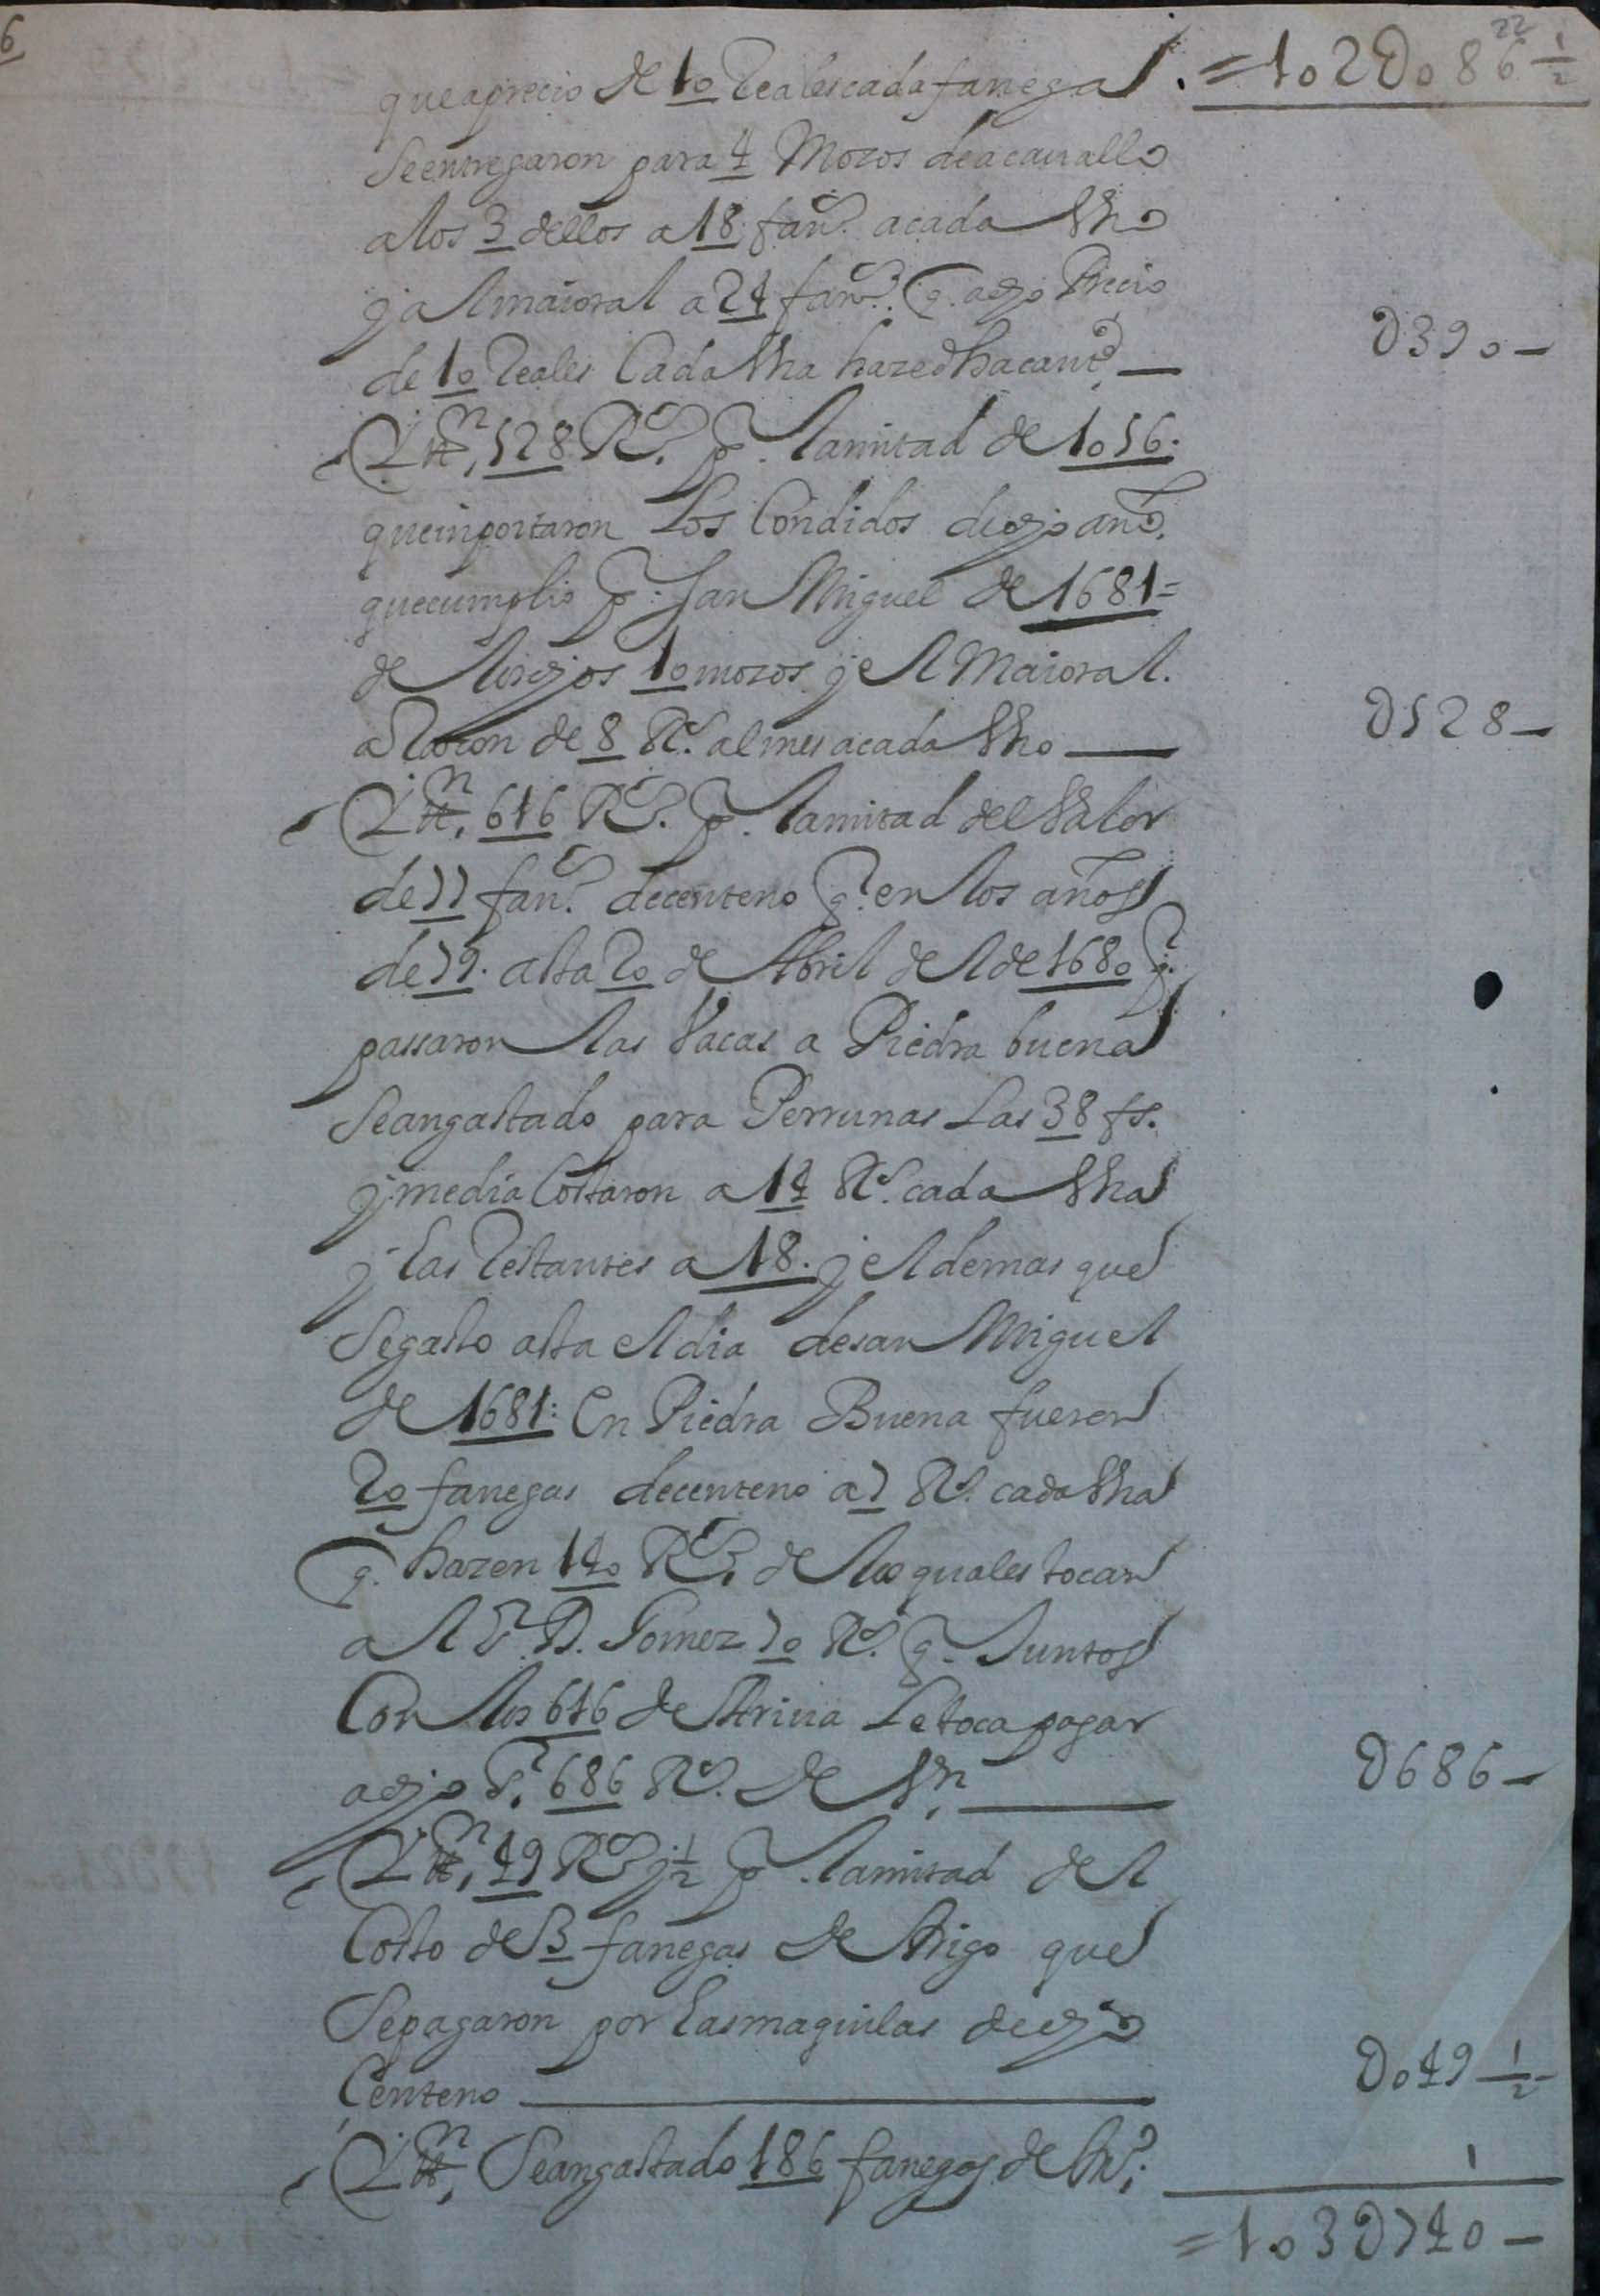 6
22
que a precio de 10 Reales cada fanega . = 102U086 1/2
Se entregaron para 4 Mozos de a cauallo
a los 3 dellos a 18 fan.s a cada Vno
y al maioral a 24 fan.s q. a dho Precio
de 10 Reales Cada Vna haze dha cant.d — U390 —
Ytt.n, 528 R.s p. la mitad de 1056.
que inportaron Los Condidos de dho año.
que cumplio p. San Miguel de 1681 =
de los dhos 10 mozos y el Maioral.
a Razon de 8 R.s al mes a cada Vno — U528 —
Ytt.n, 616 R.s p. la mitad del Valor
de 77 fan.s de centeno q. en los años
de 79. asta 20 de Abril del de 1680 q.
passaron las Vacas a Piedra buena
Se an gastado para Perrunas Las 38 fs.
y media Costaron a 14 R.s cada Vna
y las Restantes a 18. y el demas que
Se gasto asta el dia de san Miguel
de 1681: En Piedra Buena fueron
20 fanegas de centeno a 7 R.s cada Vna
q. hazen 140 R.s, de los quales tocan
al S.r D. Gomez 70 R.s q. Juntos
Con los 616 de Arriua Le toca pagar
a dho S.r 686 R.s de Vn, — U686 —
Ytt.n, 49 R.s y 1/2 p. la mitad del
Costo de 3 fanegas de trigo que
Se pagaron por las maquilas de dho
Centeno — U049 1/2 —
Ytt.n, Se an gastado 186 fanegas de
= 103U740 —